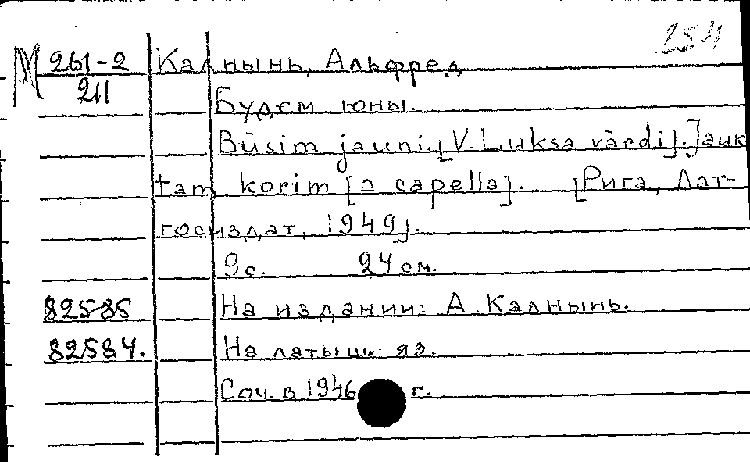 254
М 261-2 Калнынь, Альфред
211
Будем юны.
Būsim jauni. [V. Luksa vārdi]. Jauk
tam korim [a capella]. [Рига, Лат-
госиздат, 1949].
9 с. 24 см.
82585 На издании: А. Калнынь.
82584. На латыш. яз.
Соч. в 1946 г.